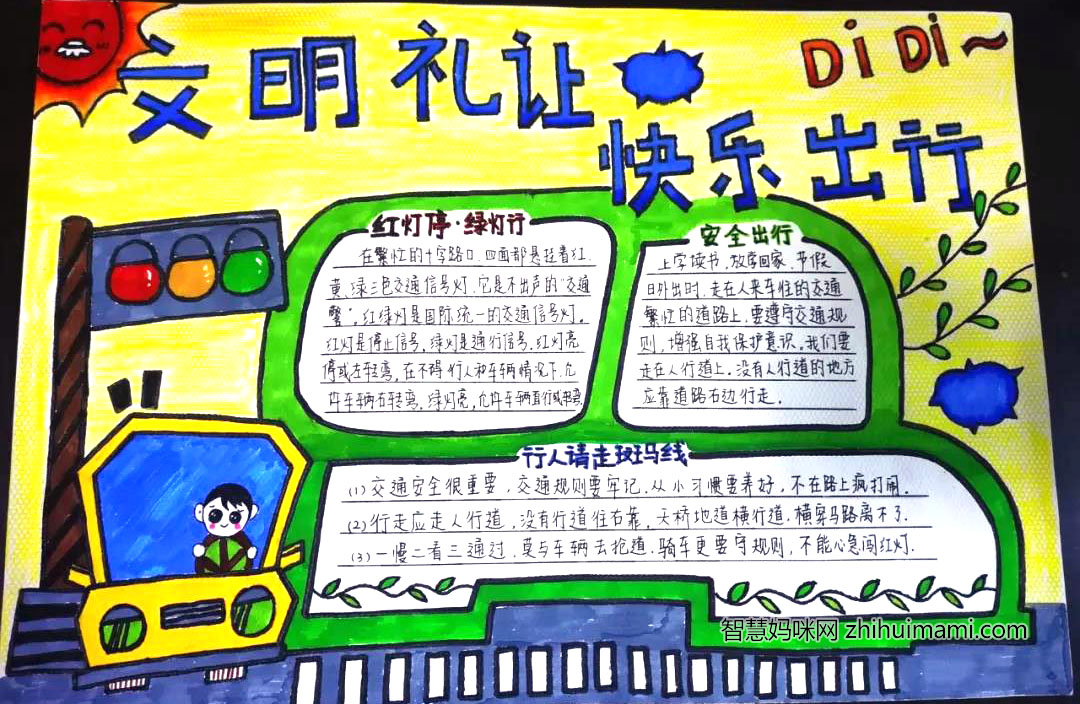 文明礼让
DiDi~
快乐出行
红灯停·绿灯行
在繁忙的十字路口，四面都悬挂着红.
黄、绿三色交通信号灯，它是不出声的“交通
警”。红绿灯是国际统一的交通信号灯。
红灯是停止信号，绿灯是通行信号。红灯亮
停或左转弯，在不碍行人和车辆情况下，允
许车辆右转弯，绿灯亮，允许车辆直行或转弯
安全出行
上学读书，放学回家、节假
日外出时，走在人来车往的交通
繁忙的道路上，要遵守交通规
则，增强自我保护意识。我们要
走在人行道上，没有人行道的地方
应靠道路右边行走。
行人请走斑马线
(1)交通安全很重要，交通规则要牢记，从小习惯要养好，不在路上疯打闹。
(2)行走应走人行道，没有行道往右靠，天桥地道横行道，横穿马路离不了.
(3)一慢二看三通过，莫与车辆去抢道，骑车更要守规则，不能心急闯红灯.
智慧妈咪网 zhihuimami.com